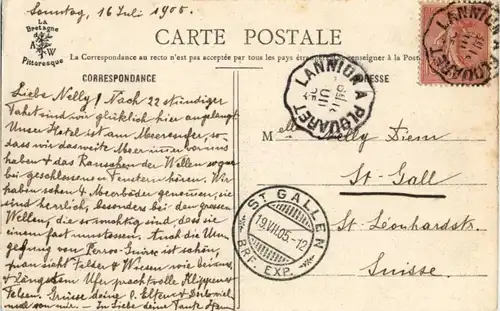 Sonntag, 16 Juli 1905.
La
Bretagne
A W
Pittoresque
CARTE POSTALE
La Correspondance au recto n'est pas acceptée par tous les pays étrangers se renseigner à la Poste
CORRESPONDANCE
ADRESSE
LANNION A PLOUARET
LANNION A PLOUARET
Liebe Nelly! Nach 22 stündiger
Fahrt sind wir glücklich hier angelangt
Unser Hotel ist am Meeresufer, so
dass wir das weite Meer immer vor uns
haben & das Rauschen der Wellen sogar
bei geschlossenen Fenstern hören. Wir
haben schon 4 Meerbäder genommen, sie
sind herrlich, besonders bei den grossen
Wellen, die so mächtig sind dass sie
einem fast umstossen. Auch die Um
gegung von Perros-Guirec ist schön,
man sieht Felder & Wiesen wie bei uns,
& längs dem Ufer prachtvolle Klippen &
Felsen. Grüsse deine
und von mir. - In Liebe deine Tante
Melle Nelly Diem
St-Gall
St. Léonhardstr.
Suisse
ST GALLEN
19.VII.05.-12
BRF. EXP.